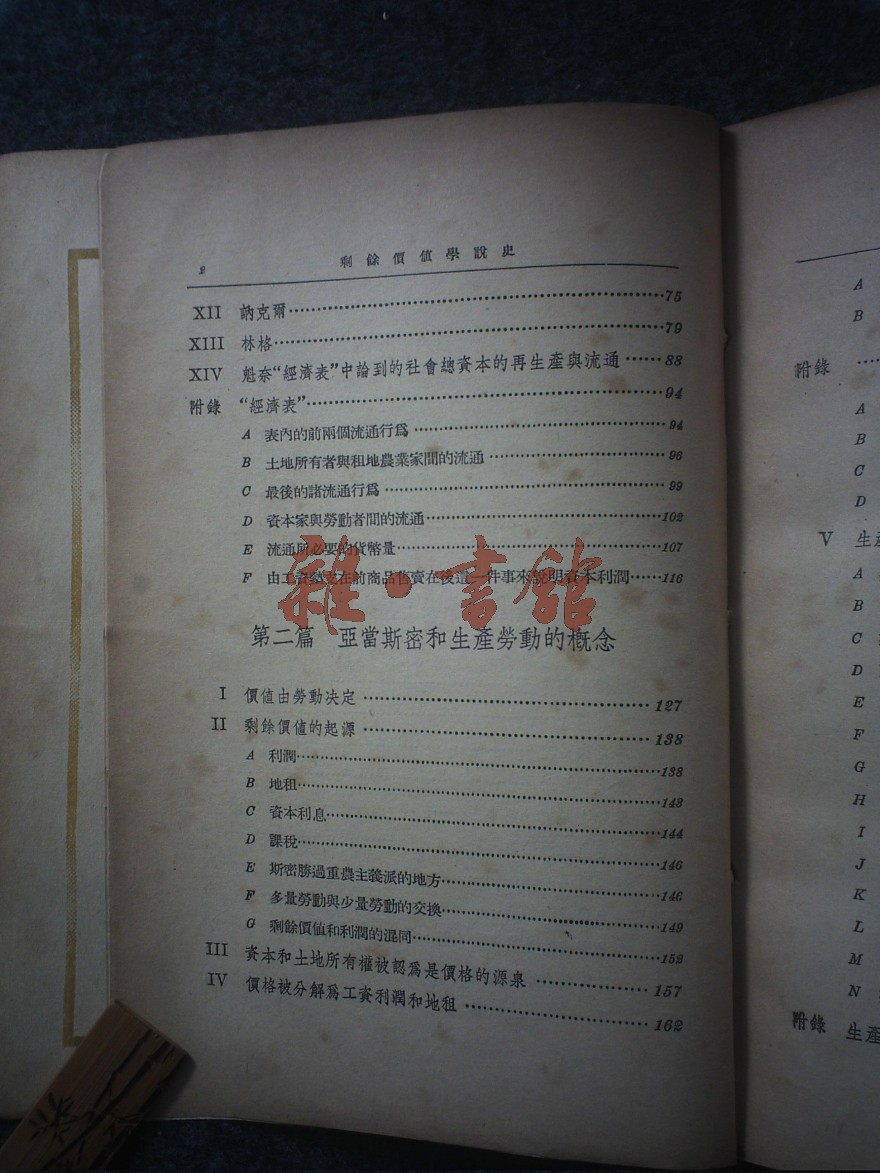 2 剩餘價值學說史
XII 訥克爾 75
XIII 林格 79
XIV 魁奈“經濟表”中論到的社會總資本的再生產與流通 88
附錄 “經濟表” 94
A 表內的前兩個流通行爲 94
B 土地所有者與租地農業家間的流通 96
C 最後的諸流通行爲 99
D 資本家與勞動者間的流通 102
E 流通所必要的貨幣量 107
F 由工資 支在前商品售賣在後這一件事來說明資本利潤 116
雜·書館
第二篇 亞當斯密和生產勞動的概念
I 價值由勞動決定 127
II 剩餘價值的起源 138
A 利潤 138
B 地租 143
C 資本利息 144
D 課稅 146
E 斯密勝過重農主義派的地方 146
F 多量勞動與少量勞動的交換 149
G 剩餘價值和利潤的混同 152
III 資本和土地所有權被認爲是價格的源泉 157
IV 價格被分解爲工資利潤和地租 162
A
B
附錄
A
B
C
D
V 生產
A
B
C
D
E
F
G
H
I
J
K
L
M
N
附錄 生產